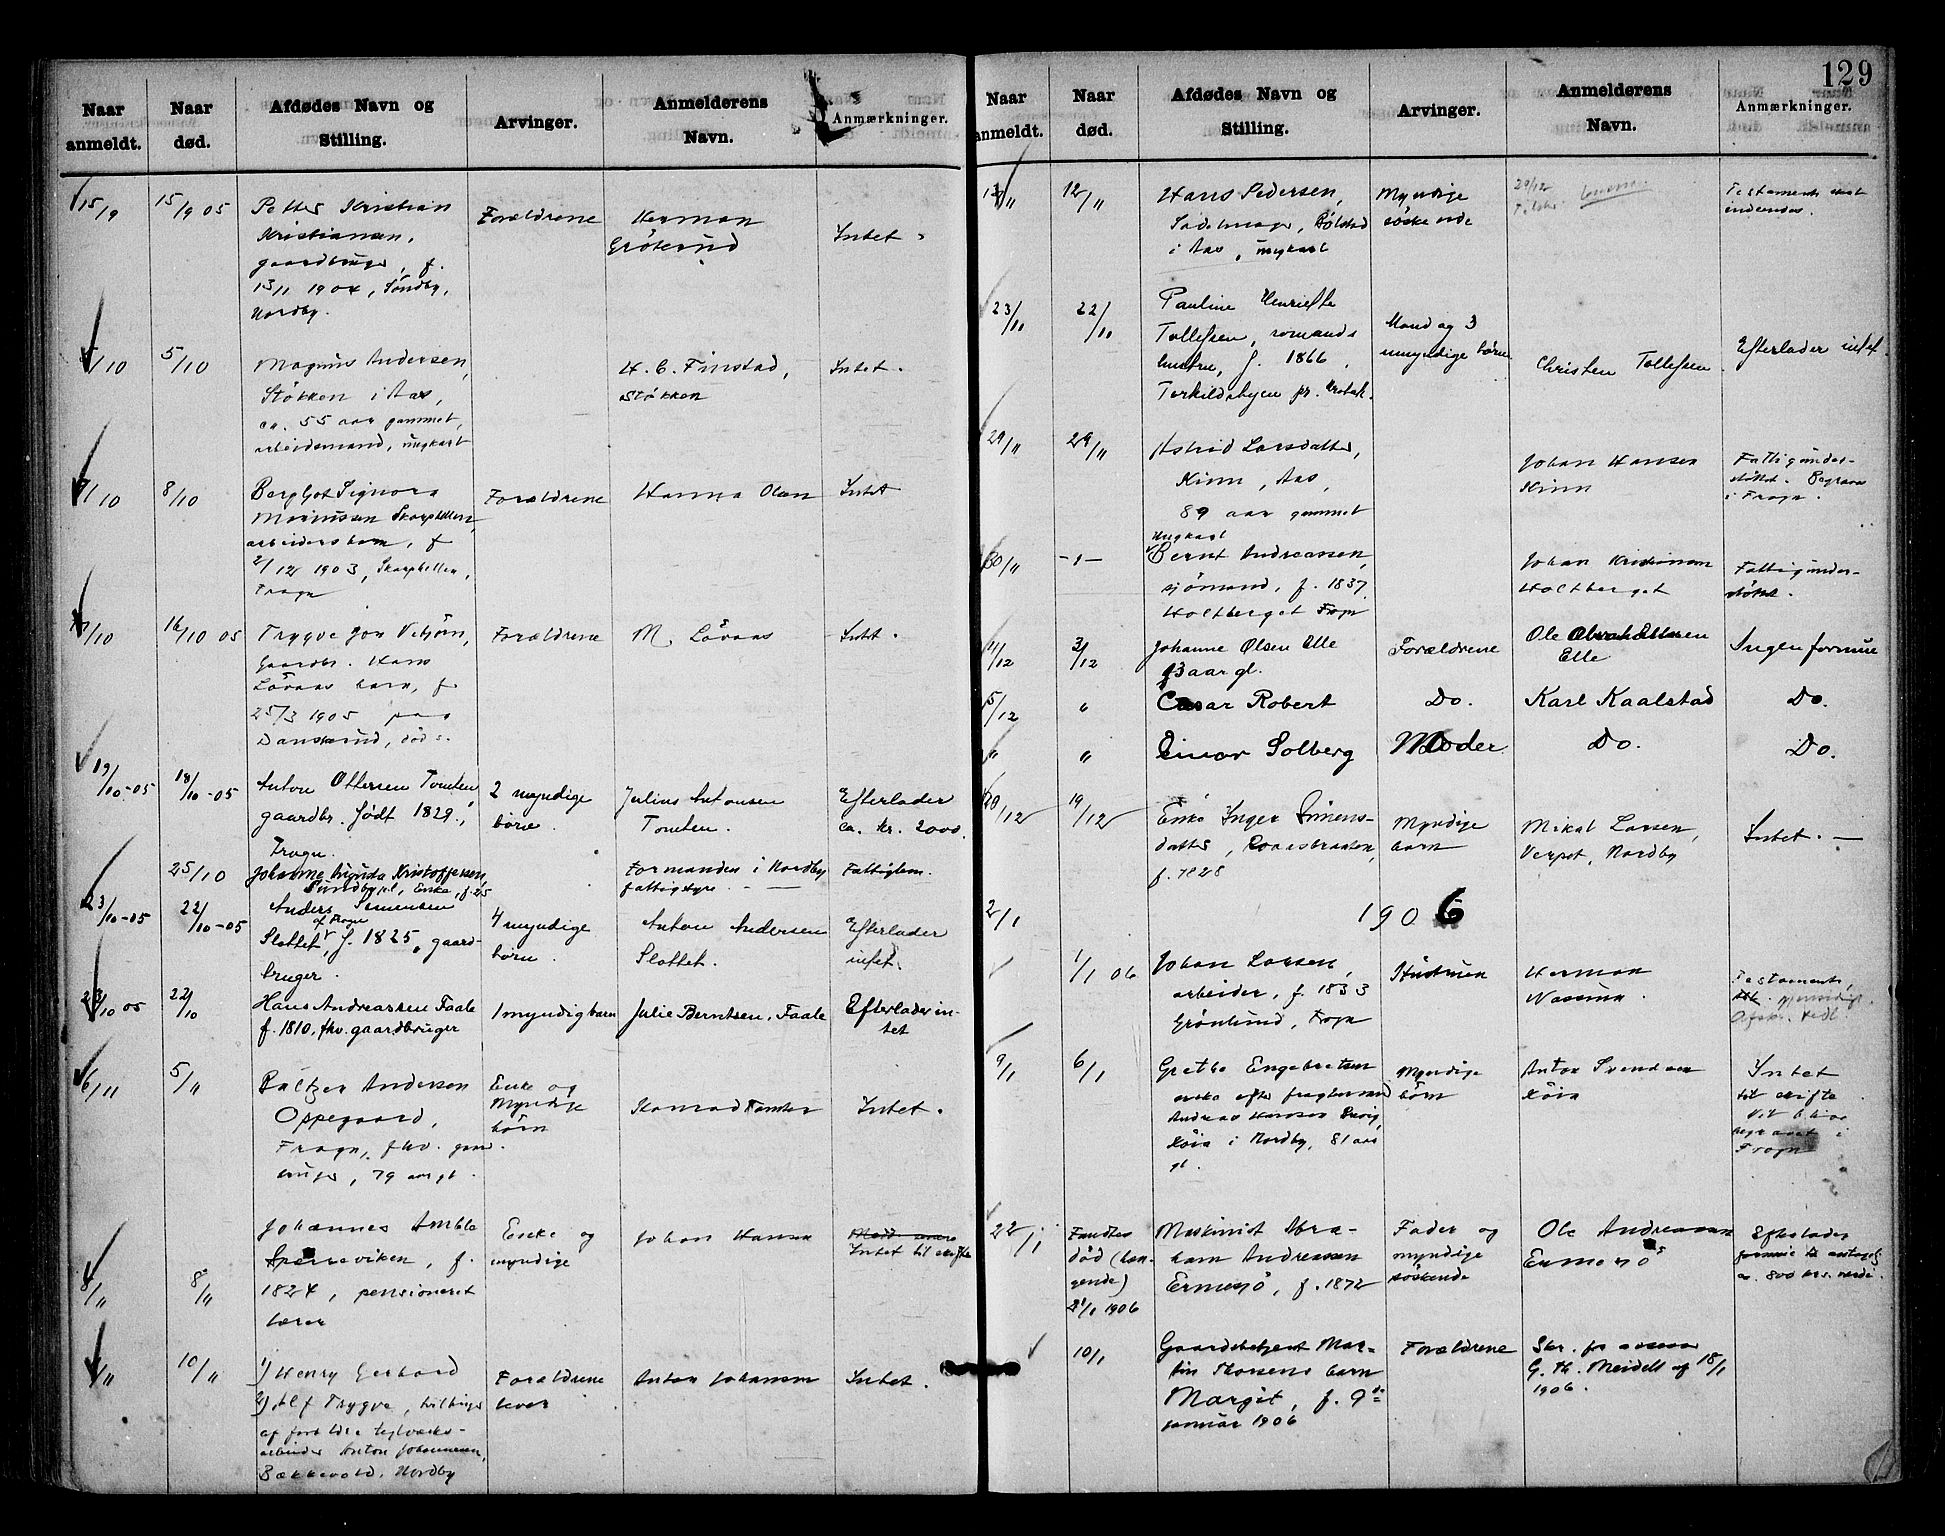 129
Naar anmeldt. Naar død. Afdødes Navn og Stilling. Arvinger. Anmelderens Navn. Anmærkninger.
15/9 15/9 05 Petter Kristian Forældrene Herman Intet.
Kristiansen, Grøterud
gaardbruger, f.
13/11 1904, Søndby,
Nordby.
/10 5/10 Magnus Andersen, H. C. Finstad, Intet.
Støkken i Aas, Støkken
ca. 55 aar gammel,
arbeidsmand, ungkarl
/10 8/10 Bergljot Signora Forældrene Hanna Olsen Intet
Marinussen Skarphellen,
arbeidersbarn, f.
2/12 1903, Skarphellen,
Frogn
/10 16/10 05 Trygve Jon Forældrene M. Løvaas Intet.
gaardbr. Hans
Løvaas barn, f.
25/3 1905 paa
død s.
19/10-05 18/10-05 Anton Ottersen Tomten 2 myndige Julius Antonsen Efterlader
gaardbr. født 1829, børn. Tomten. ca. kr. 2000.
Frogn.
25/10 Johanne Kristoffersen Formanden i Nordby Fattiglem.
Sundby, Enke, f. 25 fattigstyre.
23/10-05 22/10-05 Anders Simensen 4 myndige Anton Andersen Efterlader
af Frogn
Slottet, f. 1825, gaard- børn. Slottet. intet.
bruger.
23/10 05 22/10 Hans Andreassen Faale 1 myndig barn Julie Berntsen, Faale Efterlader in-
f. 1810, fhv. gaardbruger tet
6/11 5/11 Baltzer Andersen Enke og Konrad Tomter Intet.
Oppegaard, Myndige
Frogn, fhv. gaard- børn
bruger, 79 aar gl.
Johannes Amble Enke og Johan Hansen
Sparreviken, f. myndige Intet til skifte
8/11 8/11 1824, pensioneret
lærer
/11 10/11 1) Henry Gerhard Forældrene Anton Johansen Intet.
2) Alf Trygve, tvillinger lever
af forældre teglværks-
arbeider Anton Johannesen,
Bakkevold, Nordby
Naar anmeldt. Naar død. Afdødes Navn og Stilling. Arvinger. Anmelderens Navn. Anmærkninger.
13/11 12/11 Hans Pedersen, Myndige 20/12 Testamente skal
Sadelmager, Bølstad søskende indendes.
i Aas, ungkarl
23/11 22/11 Pauline Henriette Mand og 3 Christen Tollefsen Efterlader intet.
Tollefsen, sømands umyndige børn
hustru, f. 1866,
Torkildsbyen pr. Drøbak.
29/11 29/11 Astrid Larsdatter, Johan Hansen Fattigunder-
Kinn, Aas, Kinn støttet. Begraves
89 aar gammel i Frogn.
Ungkarl
30/11 -"- Bernt Andreassen, Johan Kristiansen Fattigunder-
sjømand, f. 1837 Holtberget støttet.
Holtberget Frogn
4/12 3/12 Johanne Olsen Elle Forældrene Ole Elle Ingen formue
13 aar gl.
5/12 " Cæsar Robert Do. Karl Kaalstad Do.
" " Einar Solberg Moder Do. Do.
20/12 19/12 Enke Inger Simens- Myndige Mikal Larsen, Intet.
datter, barn Verpet, Nordby
f. 1828
2/1 1906
1/1 06 Johan Larsen, Hustruen Herman Testamente,
arbeider, f. 1833 Nassun.
Grønlund, Frogn
9/1 6/1 Grethe Engebretsen Myndige Anton Svendsen Intet
enke efter fragtemand børn Køia til skifte
Andreas Hansen
Køia i Nordby, 81 aar begravet i
gl. Frogn
22/1 Fundtes Maskinist Abra- Fader og Ole Andreassen Efterlader
død (hæn- ham Andreassen myndige Ermesjø formue antagelig
gende) Ermesjø, f. 1872 søskende ca. 800 krs. værdi.
21/1 1906
10/1 Gaardsbetjent Mar- Forældrene Skr. fra
tin Thorsens barn G. Th. Meidell af 18/1
Margit, f. 9de 1906.
januar 1906